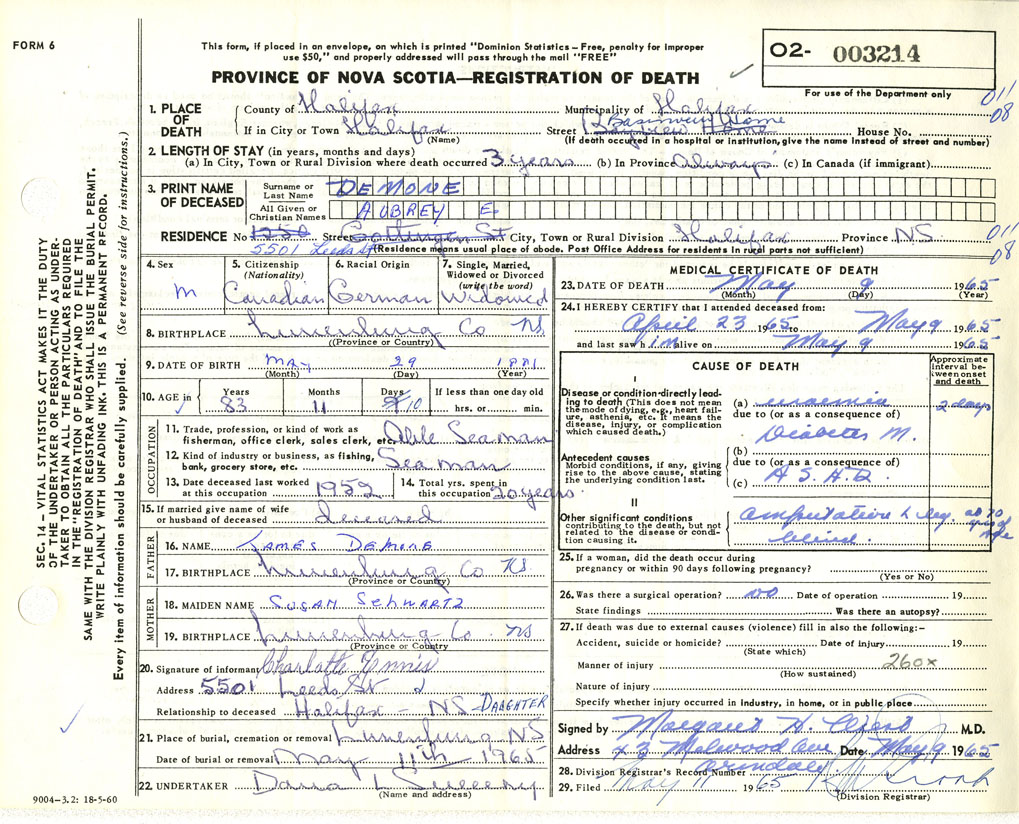 FORM 6
This form, if placed in an envelope, on which is printed "Dominion Statistics – Free, penalty for improper
use $50," and properly addressed will pass through the mail "FREE"
O2- 003214
For use of the Department only
011
08
PROVINCE OF NOVA SCOTIA—REGISTRATION OF DEATH
SEC. 14 – VITAL STATISTICS ACT MAKES IT THE DUTY
OF THE UNDERTAKER OR PERSON ACTING AS UNDER-
TAKER TO OBTAIN ALL THE PARTICULARS REQUIRED
IN THE "REGISTRATION OF DEATH" AND TO FILE THE
SAME WITH THE DIVISION REGISTRAR WHO SHALL ISSUE THE BURIAL PERMIT.
WRITE PLAINLY WITH UNFADING INK. THIS IS A PERMANENT RECORD.
Every item of information should be carefully supplied. (See reverse side for instructions.)
1. PLACE OF DEATH
County of Halifax Municipality of Halifax
Basinview Home
If in City or Town Halifax Street Bayview Home House No.
(Name) (If death occurred in a hospital or institution, give the name instead of street and number)
2. LENGTH OF STAY (in years, months and days)
(a) In City, Town or Rural Division where death occurred 3 years (b) In Province Always (c) In Canada (if immigrant)
3. PRINT NAME OF DECEASED
Surname or Last Name DEMONE
All Given or Christian Names AUBREY E.
RESIDENCE No. 1250 Street Gottingen St City, Town or Rural Division Halifax Province NS
011
08
5501 Leeds St (Residence means usual place of abode. Post Office Address for residents in rural parts not sufficient)
4. Sex 5. Citizenship (Nationality) 6. Racial Origin 7. Single, Married, Widowed or Divorced (write the word)
M Canadian German Widowed
8. BIRTHPLACE Lunenburg Co NS
(Province or Country)
9. DATE OF BIRTH MAY 29 1881
(Month) (Day) (Year)
10. AGE in Years Months Days If less than one day old
83 11 10 hrs. or min.
OCCUPATION
11. Trade, profession, or kind of work as
fisherman, office clerk, sales clerk, etc. Able Seaman
12. Kind of industry or business, as fishing,
bank, grocery store, etc. Seaman
13. Date deceased last worked at this occupation 1952 14. Total yrs. spent in this occupation 20 years
15. If married give name of wife
or husband of deceased deceased
FATHER
16. NAME JAMES DEMONE
17. BIRTHPLACE Lunenburg Co NS
(Province or Country)
MOTHER
18. MAIDEN NAME SUSAN SCHWARTZ
19. BIRTHPLACE Lunenburg Co NS
(Province or Country)
20. Signature of informant Charlotte Ennis
Address 5501 Leeds St
Relationship to deceased Halifax – NS DAUGHTER
21. Place of burial, cremation or removal Lunenburg NS
Date of burial or removal May 11th 1965
22. UNDERTAKER Dana L Sweeny
(Name and address)
9004–3.2: 18-5-60
MEDICAL CERTIFICATE OF DEATH
23. DATE OF DEATH May 9 1965
(Month) (Day) (Year)
24. I HEREBY CERTIFY that I attended deceased from:
April 23 1965 to May 9 1965
and last saw him alive on May 9 1965
CAUSE OF DEATH
Approximate interval between onset and death
I
Disease or condition directly leading to death (This does not mean the mode of dying, e.g., heart failure, asthenia, etc. It means the disease, injury, or complication which caused death.)
(a) uraemia 2 days
due to (or as a consequence of)
Diabetes M.
Antecedent causes
Morbid conditions, if any, giving rise to the above cause, stating the underlying condition last.
(b)
due to (or as a consequence of)
(c) A S H D
II
Other significant conditions contributing to the death, but not related to the disease or condition causing it.
amputation L leg. at 70
blind.
25. If a woman, did the death occur during
pregnancy or within 90 days following pregnancy?
(Yes or No)
26. Was there a surgical operation? no Date of operation 19
State findings Was there an autopsy?
27. If death was due to external causes (violence) fill in also the following:–
Accident, suicide or homicide? Date of injury 19
(State which)
Manner of injury 260x
(How sustained)
Nature of injury
Specify whether injury occurred in industry, in home, or in public place
Signed by Margaret H. M.D.
Address Melwood Ave Date May 9 1965
Armdale
28. Division Registrar's Record Number
29. Filed May 11 1965
(Division Registrar)